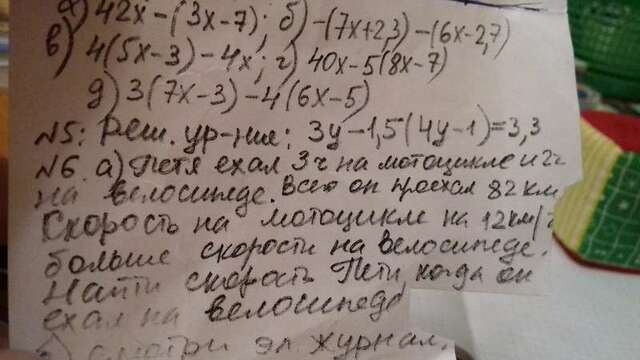 а) 42x-(3x-7); б) -(7x+2,3)-(6x-2,7)
в) 4(5x-3)-4x; г) 40x-5(8x-7)
д) 3(7x-3)-4(6x-5)
№5: Реш. ур-ния: 3y-1,5(4y-1)=3,3
№6. а) Петя ехал 3ч на мотоцикле и 2ч
на велосипеде. Всего он проехал 82 км
Скорость на мотоцикле на 12км/ч
больше скорости на велосипеде.
Найти скорость Пети, когда он
ехал на велосипеде
смотри эл. журнал.